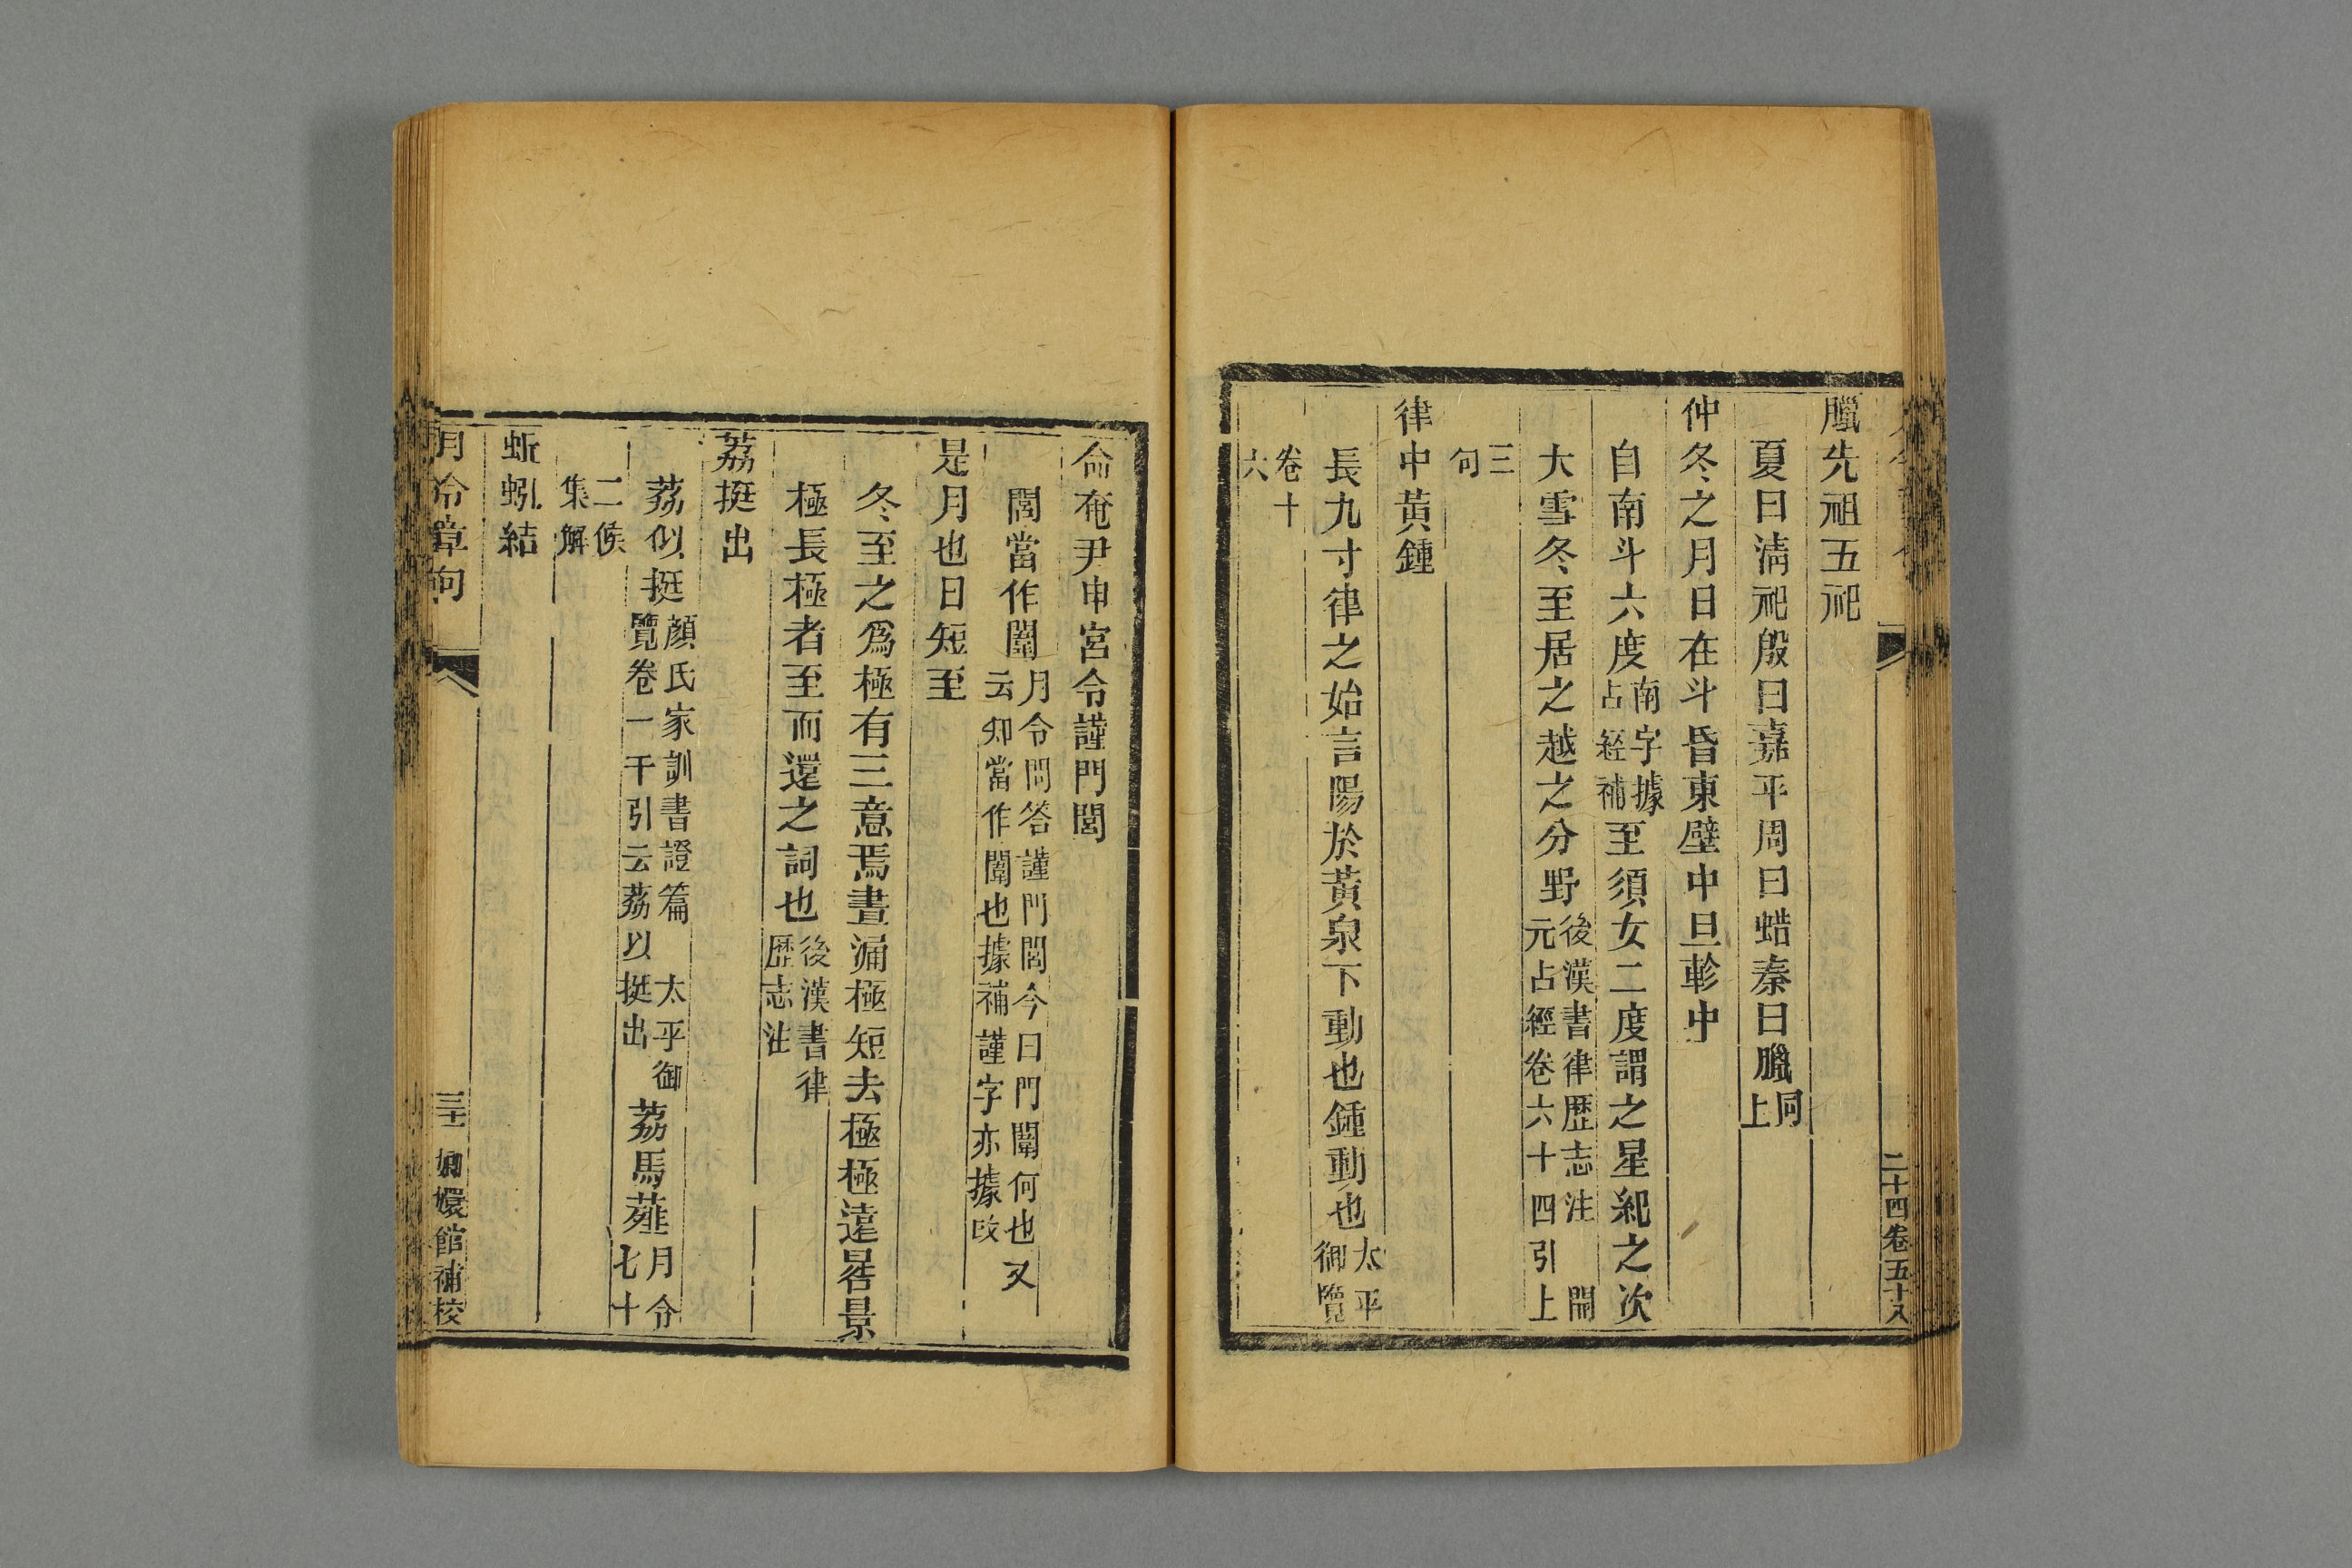 臘先祖五祀
夏曰淸祀殷曰嘉平周曰蜡秦曰臘同上
仲冬之月日在斗昏東壁中旦軫中
自南斗六度南字據占經補至須女二度謂之星紀之次
大雪冬至居之越之分野後漢書律歷志注 開元占經卷六十四引上
三句
律中黃鍾
長九寸律之始言陽於黃泉下動也鍾動也太平御覽
卷十六
二十四卷五十八
命奄尹申宮令謹門閭
閭當作闈月令問答謹門閭今曰門闈何也又云知當作闈也據補謹字亦據改
是月也日短至
冬至之爲極有三意焉晝漏極短去極極遠晷景
極長極者至而還之詞也後漢書律歷志注
荔挺出
荔似挺顔氏家訓書證篇 太平御覽卷一千引云荔以挺出荔馬薤月令七十
二候集解
蚯蚓結
月令章句
三十二 嫏嬛館補校